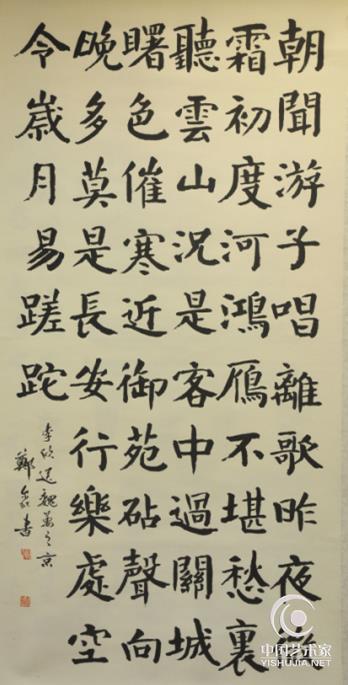 朝聞游子唱離歌昨夜微
霜初度河鴻鴈不堪愁裏
聽雲山況是客中過關城
曙色催寒近御苑砧聲向
晚多莫是長安行樂處空
令歲月易蹉跎
李欣送魏萬之京
鄭書
中国艺术家
YISHUJIA.NET